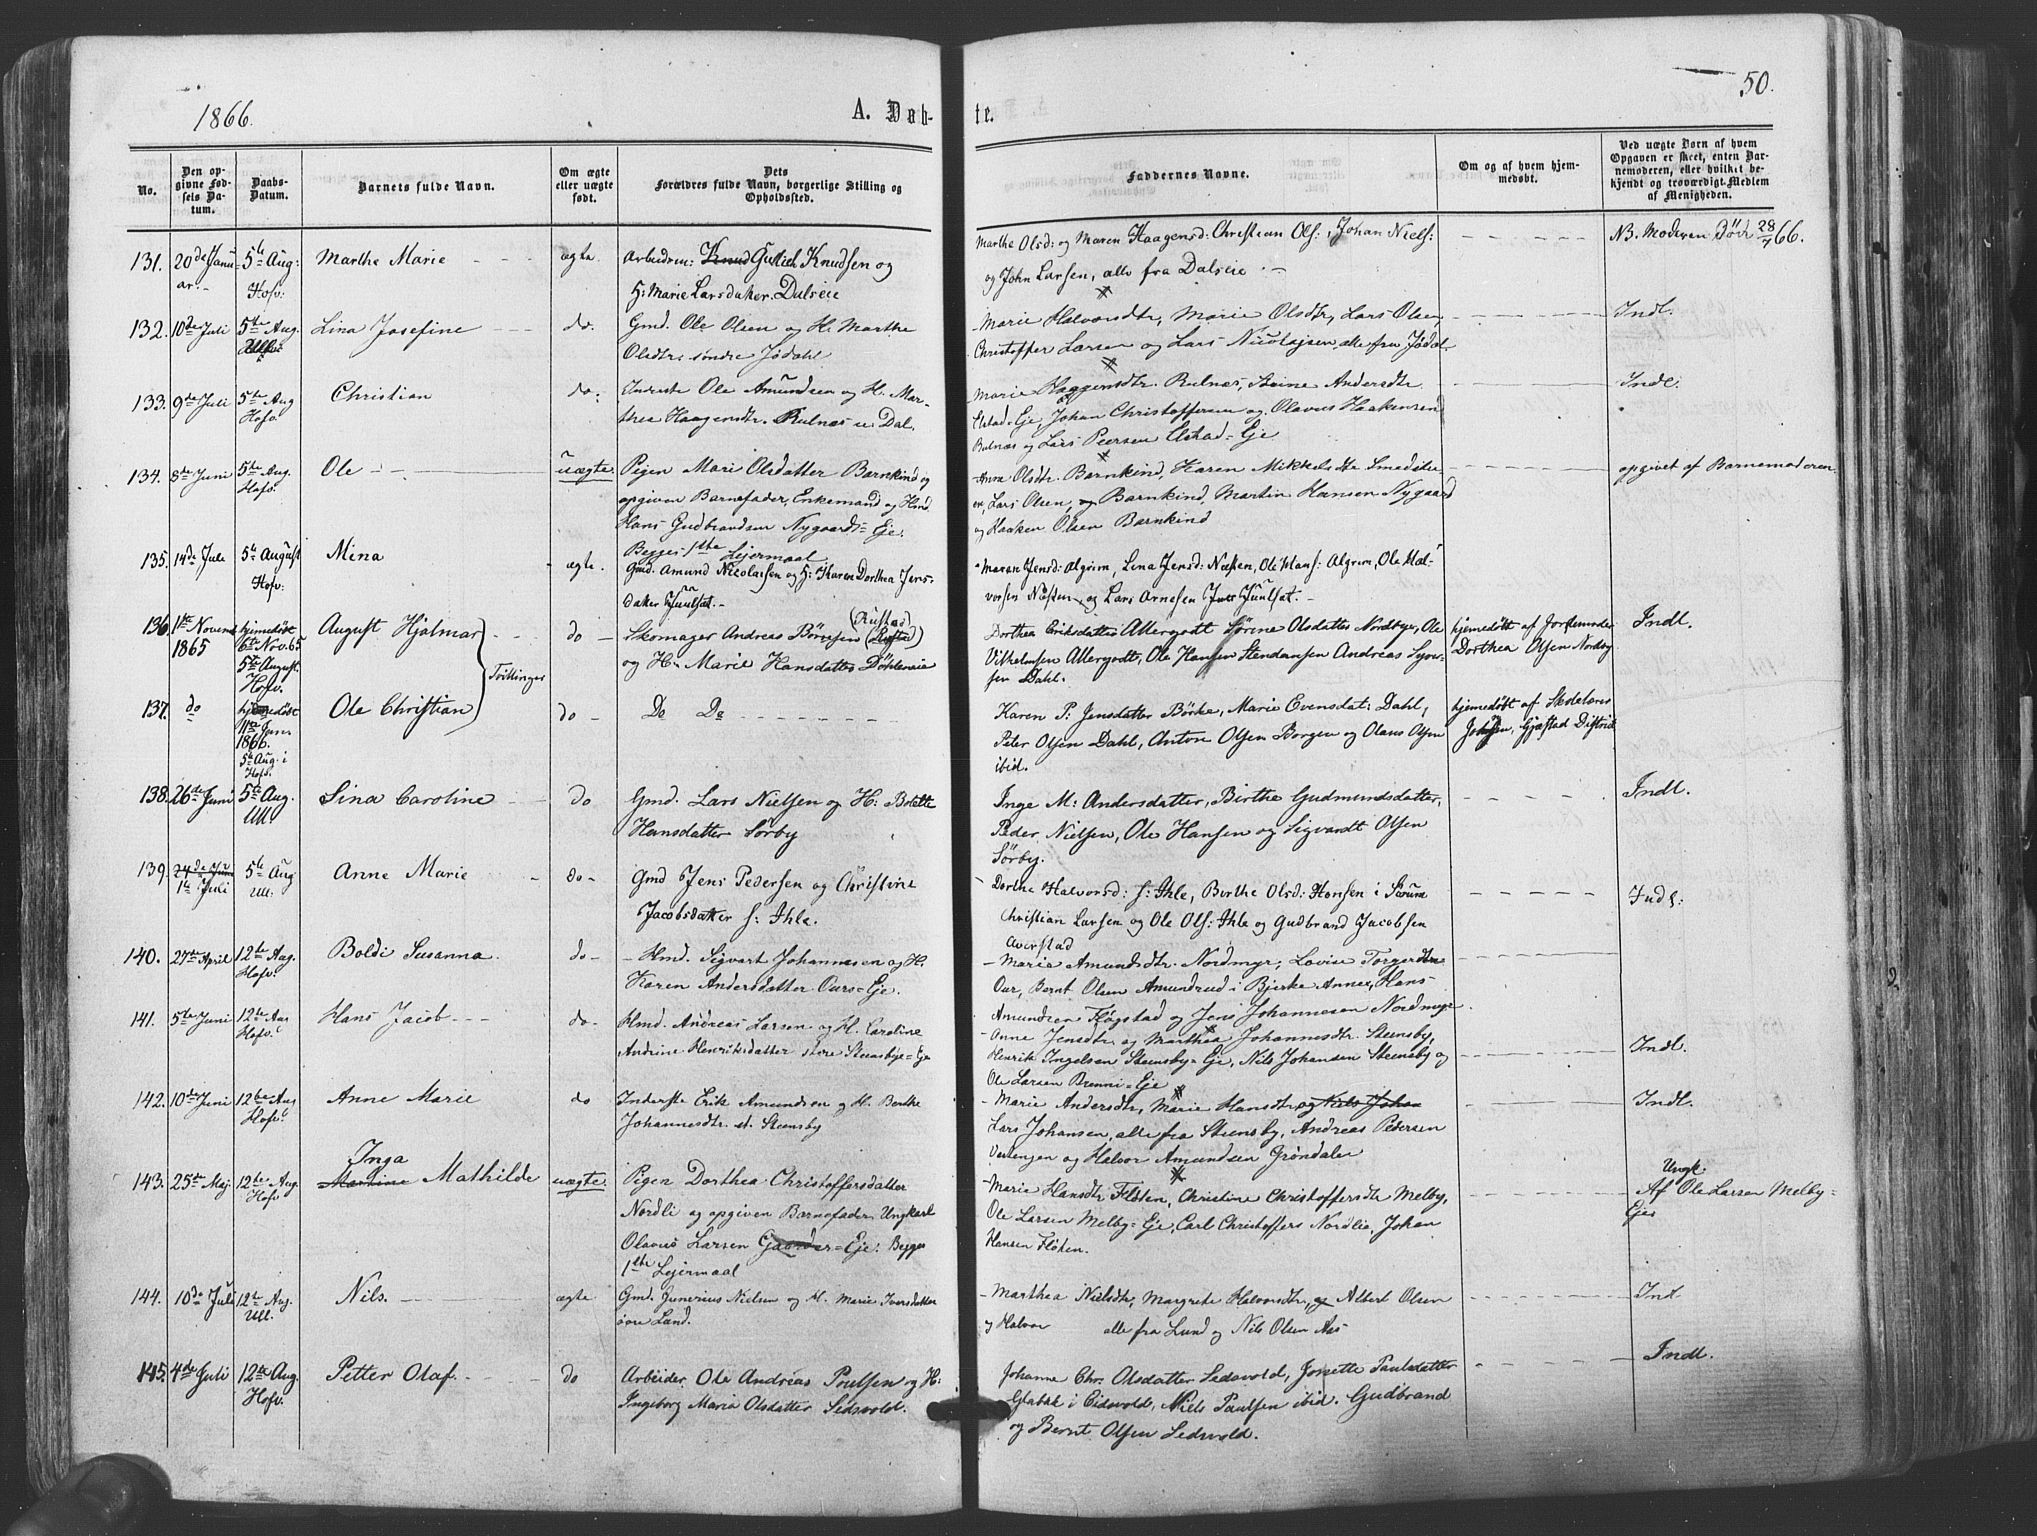 1866.
A. Døb-
te.
50.
No.
Den op-
givne Fød-
sels Da-
tum.
Daabs-
Datum.
Barnets fulde Navn.
Om ægte
eller uægte
født.
Dets
Forældres fulde Navn, borgerlige Stilling og
Opholdssted.
Faddernes Navne.
Om og af hvem hjem-
medøbt.
Ved uægte Børn af hvem
Opgaven er skeet, enten Bar-
nemoderen, eller hvilket be-
kjendt og troværdigt Medlem
af Menigheden.
131. 20de Janu-
ar.
5te Aug:
Hofv:
Marthe Marie
ægte.
Arbeidsm: Knud Gulbr Knudsen og
H: Marie Larsdatter. Dalseie
Marthe Olsd: og Maren Haagensd: Christian Ols:, Johan Niels:
og John Larsen, alle fra Dalseie.
NB. Moderen Død 28/7 66.
132. 10de Juli
5te Aug.
Ull:
Lina Josefine
do.
Gmd. Ole Olsen og H. Marthe
Olsdtr. søndre Jødahl
Marie Halvorsdtr, Marie Olsdtr, Lars Olsen,
Christoffer Larsen og Lars Nicolajsen, alle fra Jødal
Indl.
133. 9de Juli
5te Aug
Hofv.
Christian
do:
Inderste Ole Amundsen og H. Mar-
thea Haagensdtr. Rulnæs u. Dal.
Marie Haagensdtr. Rulnæs, Steine Andersdtr
Elstad-Eje, Johan Christoffersen og Olavus Haakensen
Rulnæs og Lars Peersen Elstad-Eje
Indl.
134. 8de Juni
5te Aug.
Hofv.
Ole
uægte.
Pigen Mari Olsdatter Barnkind og
opgiven Barnefader, Enkemand og Hmd
Hans Gudbrandsen Nygaards-Eje.
Begges 1ste Lejermaal
Anne Olsdtr. Barnkind, Karen Mikkelsdtr Smedstu-
en, Lars Olsen, og Barnkind, Martin Hansen Nygaard
og Haaken Olsen Barnkind
opgivet af Barnemoderen.
135. 14de Juli
5te August
Hofv:
Mina
ægte.
Gmd. Amund Nicolaisen og H: Karen Dorthea Jens-
datter Juulsat.
Maren Jensd: Algrim, Lina Jensd: Næsten, Ole Hans: Algrim, Ole Hal-
vorsen Næsten, og Lars Arnesen Juulsat.
136. 1ste Novemb
1865
hjemmedøbt
6te Nov. 65
5te August.
Hofv.
August Hjalmar
Tvillinger
do
Skomager Andreas Børresen (Rustad)
og H. Marie Hansdatter Døhleneie
Dorthea Eriksdatter Allergodt Sørine Olsdatter Nordbye, Ole
Vilhelmsen Allergodt, Ole Hansen Stendansen Andreas Syver-
sen Dahl.
hjemmedøbt af Jordemoder
Dorthea Olsen Nordby
Indl.
137. do
hjemmedøbt
11te Jan.
1866.
5te Aug. i
Hofv.
Ole Christian
do
Do Do
Karen P: Jensdatter Børke, Marie Evensdat: Dahl,
Peter Olsen Dahl, Anton Olsen Borgen og Olaus Olsen
ibid.
hjemmedøbt af Skolelærer
Johnsen, Gjestad District
138. 26de Juni
5te Aug.
Ull.
Lina Caroline
do
Gmd. Lars Nielsen og H: Bolette
Hansdatter Sørby
Inge M: Andersdatter, Birthe Gudmundsdatter,
Peder Nielsen, Ole Hansen og Sigvardt Olsen
Sørby.
Indl.
139. 24de Juni
1te Juli
5te Aug
Ull.
Anne Marie
do
Gmd Jens Pedersen og Christine
Jacobsdatter s: Ihle.
Dorthe Halvorsd: s: Ihle, Berthe Olsd: Honsen i Sørum
Christian Larsen og Ole Ols: Ihle og Gudbrand Jacobsen
Averstad
Indl:
140. 27de April
12te Aug.
Hofv.
Boldi Susanna
do
Hmd. Sigvart Johannesen og H.
Karen Andersdatter Ours-Eje.
Maria Amundsdtr. Nordmyr, Lovise Torgersdtr
Our, Bernt Olsen Amundrud i Bjerke Annex, Hans
Amundsen Fløgstad og Jens Johannesen Nordmyr
141. 5te Juni
12te Aug
Hofv.
Hans Jacob
do
Hmd. Andreas Larsen og H. Caroline
Andrine Henriksdatter store Steensbye-Eje
Anne Jensdtr. og Marthea Johannesdtr. Steensby,
Henrik Ingelsen Steensby-Eje, Nils Johansen Steensby og
Ole Larsen Brenni-Eje
Indl.
142. 10de Juni
12te Aug
Hofv.
Anne Marie
do
Inderste Erik Amundsen og H. Berthe
Johannesdtr. st. Steensby
Marie Andersdtr, Marie Hansdtr, og Nils Johan
Lars Johansen, alle fra Steensby, Andreas Pedersen
Vestengen og Halvor Amundsen Grøndalen
Indl.
143. 25de Maj
12te Aug.
Hofv
Inga
Martine Mathilde
uægte.
Pigen Dorthea Christoffersdatter
Nordli og opgiven Barnefader Ungkarl
Olavus Larsen Gaarder-Eje: Begges
1ste Lejermaal
Marie Hansdtr Fløten, Christine Christoffersdtr Melby,
Ole Larsen Melby-Eje, Carl Christoffers Nordlie, Johan
Hansen Fløten.
Ungk.
Af Ole Larsen Melby-
Eje
144. 10de Juli
12te Aug.
Ull.
Nils.
ægte
Gmd. Junerius Nielsen og H. Marie Iversdatter
øvre Lund.
Marthea Nielsdtr, Margrete Halvorsdtr, og Albert Olsen
og Halvor alle fra Lund og Nils Olsen Aas
Indl
145. 4de Juli
12te Aug
Hofv.
Petter Olaf.
do
Arbeider Ole Andreas Poulsen og H:
Ingeborg Maria Olsdatter Ledsvold.
Johanne Chr. Olsdatter Ledsvold, Josette Paulsdatter
Glabak i Eidsvold, Niels Paulsen ibid. Gudbrand
og Bernt Olsen Ledsvold.
Indl.